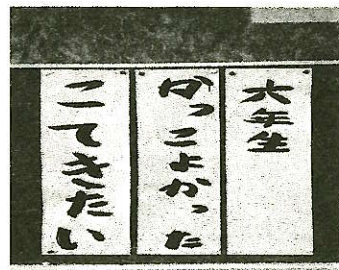 六年生
かっこよかった
こてきたい